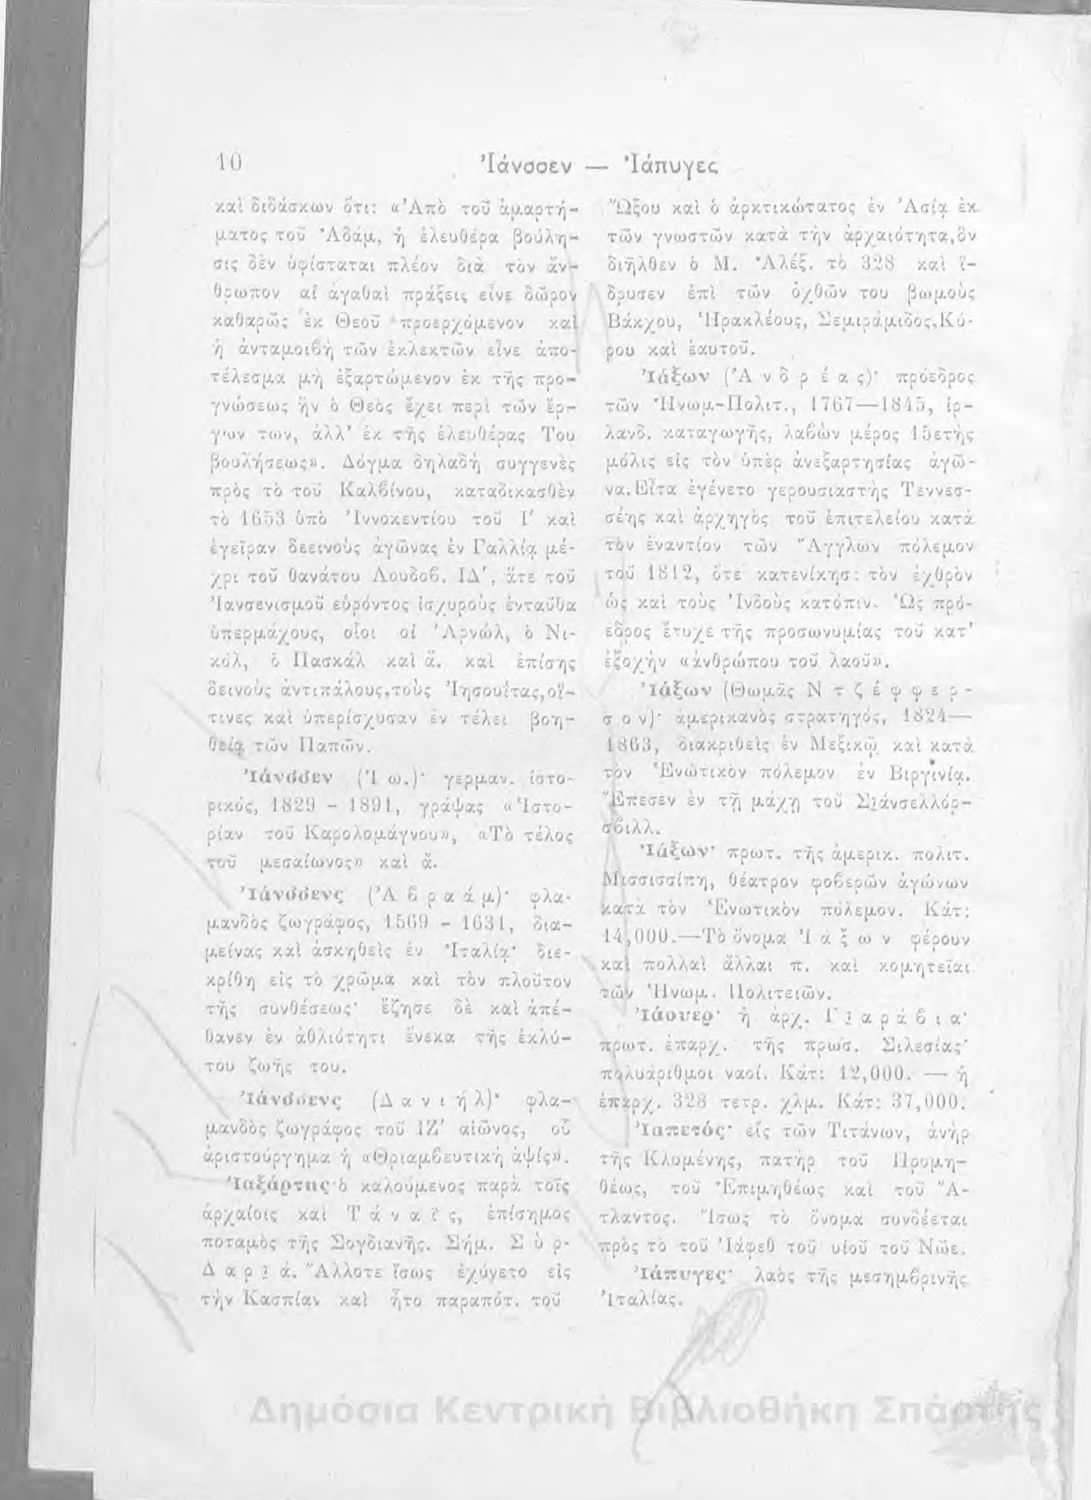 10
Ἰάνσσεν — Ἰάπυγες
καὶ διδάσκων ὅτι: «Ἀπὸ τοῦ ἁμαρτή-
ματος τοῦ Ἀδάμ, ἡ ἐλευθέρα βούλη-
σις δὲν ὑφίσταται πλέον διὰ τὸν ἄν-
θρωπον αἱ ἀγαθαὶ πράξεις εἶνε δῶρον
καθαρῶς ἐκ Θεοῦ προερχόμενον καὶ
ἡ ἀνταμοιβὴ τῶν ἐκλεκτῶν εἶνε ἀπο-
τέλεσμα μὴ ἐξαρτώμενον ἐκ τῆς προ-
γνώσεως ἣν ὁ Θεὸς ἔχει περὶ τῶν ἔρ-
γων των, ἀλλ' ἐκ τῆς ἐλευθέρας Του
βουλήσεως». Δόγμα δηλαδὴ συγγενὲς
πρὸς τὸ τοῦ Καλβίνου, καταδικασθὲν
τὸ 1653 ὑπὸ Ἰννοκεντίου τοῦ Ι' καὶ
ἐγεῖραν δεεινοὺς ἀγῶνας ἐν Γαλλίᾳ μέ-
χρι τοῦ θανάτου Λουδοβ. ΙΔ', ἅτε τοῦ
Ἰανσενισμοῦ εὑρόντος ἰσχυροὺς ἐνταῦθα
ὑπερμάχους, οἷοι οἱ Ἀρνώλ, ὁ Νι-
κόλ, ὁ Πασκάλ καὶ ἄ. καὶ ἐπίσης
δεινοὺς ἀντιπάλους,τοὺς Ἰησουΐτας,οἵ-
τινες καὶ ὑπερίσχυσαν ἐν τέλει βοη-
θείᾳ τῶν Παπῶν.
Ἰάνσσεν (Ἰω.)· γερμαν. ἱστο-
ρικός, 1829 - 1891, γράψας «Ἱστο-
ρίαν τοῦ Καρολομάγνου», «Τὸ τέλος
τοῦ μεσαίωνος» καὶ ἄ.
Ἰάνσσενς (Ἀβραάμ)· φλα-
μανδὸς ζωγράφος, 1569 - 1631, δια-
μείνας καὶ ἀσκηθεὶς ἐν Ἰταλίᾳ· διε-
κρίθη εἰς τὸ χρῶμα καὶ τὸν πλοῦτον
τῆς συνθέσεως· ἔζησε δὲ καὶ ἀπέ-
θανεν ἐν ἀθλιότητι ἕνεκα τῆς ἐκλύ-
του ζωῆς του.
Ἰάνσσενς (Δανιήλ)· φλα-
μανδὸς ζωγράφος τοῦ ΙΖ' αἰῶνος, οὗ
ἀριστούργημα ἡ «Θριαμβευτικὴ ἁψίς».
Ἰαξάρτης· ὁ καλούμενος παρὰ τοῖς
ἀρχαίοις καὶ Τάναϊς, ἐπίσημος
ποταμὸς τῆς Σογδιανῆς. Σήμ. Σὺρ-
Δαριά. Ἄλλοτε ἴσως ἐχύνετο εἰς
τὴν Κασπίαν καὶ ἦτο παραπότ. τοῦ
Ὤξου καὶ ὁ ἀρκτικώτατος ἐν Ἀσίᾳ ἐκ
τῶν γνωστῶν κατὰ τὴν ἀρχαιότητα,ὃν
διῆλθεν ὁ Μ. Ἀλέξ. τὸ 328 καὶ ἵ-
δρυσεν ἐπὶ τῶν ὀχθῶν του βωμοὺς
Βάκχου, Ἡρακλέους, Σεμιράμιδος,Κύ-
ρου καὶ ἑαυτοῦ.
Ἰάξων (Ἀνδρέας)· πρόεδρος
τῶν Ἡνωμ-Πολιτ., 1767—1845, ἰρ-
λανδ. καταγωγῆς, λαβὼν μέρος 15ετὴς
μόλις εἰς τὸν ὑπὲρ ἀνεξαρτησίας ἀγῶ-
να.Εἶτα ἐγένετο γερουσιαστὴς Τεννεσ-
σέης καὶ ἀρχηγὸς τοῦ ἐπιτελείου κατὰ
τὸν ἐναντίον τῶν Ἄγγλων πόλεμον
τοῦ 1812, ὅτε κατενίκησε τὸν ἐχθρὸν
ὡς καὶ τοὺς Ἰνδοὺς κατόπιν. Ὡς πρό-
εδρος ἔτυχε τῆς προσωνυμίας τοῦ κατ'
ἐξοχὴν «ἀνθρώπου τοῦ λαοῦ».
Ἰάξων (Θωμᾶς Ντζέφφερ-
σον)· ἀμερικανὸς στρατηγός, 1824—
1863, διακριθεὶς ἐν Μεξικῷ καὶ κατὰ
τὸν Ἑνωτικὸν πόλεμον ἐν Βιργινίᾳ.
Ἔπεσεν ἐν τῇ μάχῃ τοῦ Σιάνσελλόρ-
σβιλλ.
Ἰάξων· πρωτ. τῆς ἀμερικ. πολιτ.
Μισσισσίπη, θέατρον φοβερῶν ἀγώνων
κατὰ τὸν Ἑνωτικὸν πόλεμον. Κάτ:
14,000.—Τὸ ὄνομα Ἰάξων φέρουν
καὶ πολλαὶ ἄλλαι π. καὶ κομητεῖαι
τῶν Ἡνωμ. Πολιτειῶν.
Ἰάουερ· ἡ ἀρχ. Γιαράβια·
πρωτ. ἐπαρχ. τῆς πρωσ. Σιλεσίας·
πολυάριθμοι ναοί. Κάτ: 12,000. — ἡ
ἐπαρχ. 328 τετρ. χλμ. Κάτ: 37,000.
Ἰαπετός· εἷς τῶν Τιτάνων, ἀνὴρ
τῆς Κλυμένης, πατὴρ τοῦ Προμη-
θέως, τοῦ Ἐπιμηθέως καὶ τοῦ Ἄ-
τλαντος. Ἴσως τὸ ὄνομα συνδέεται
πρὸς τὸ τοῦ Ἰάφεθ τοῦ υἱοῦ τοῦ Νῶε.
Ἰάπυγες· λαὸς τῆς μεσημβρινῆς
Ἰταλίας.
Δημόσια Κεντρική Βιβλιοθήκη Σπάρτης